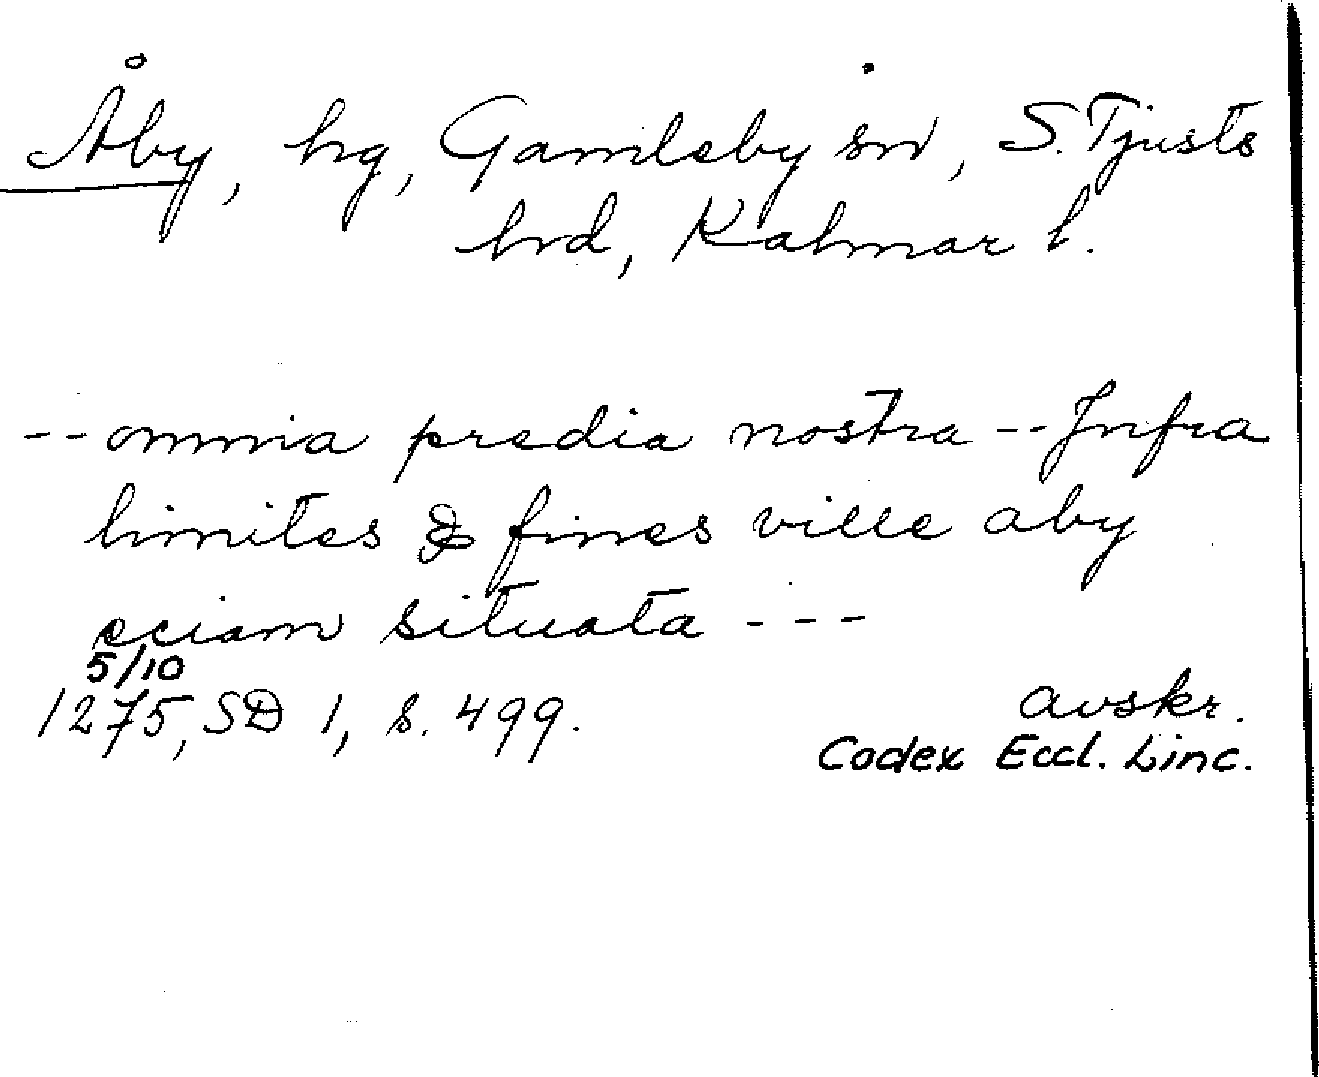 Åby, hg, Gamleby sn, S. Tjusts
hrd, Kalmar l.
-- omnia predia nostra -- Jnfra
limites & fines ville aby
eciam situata ---
5/10
1275, SD 1, s. 499.
avskr.
Codex Eccl. Linc.